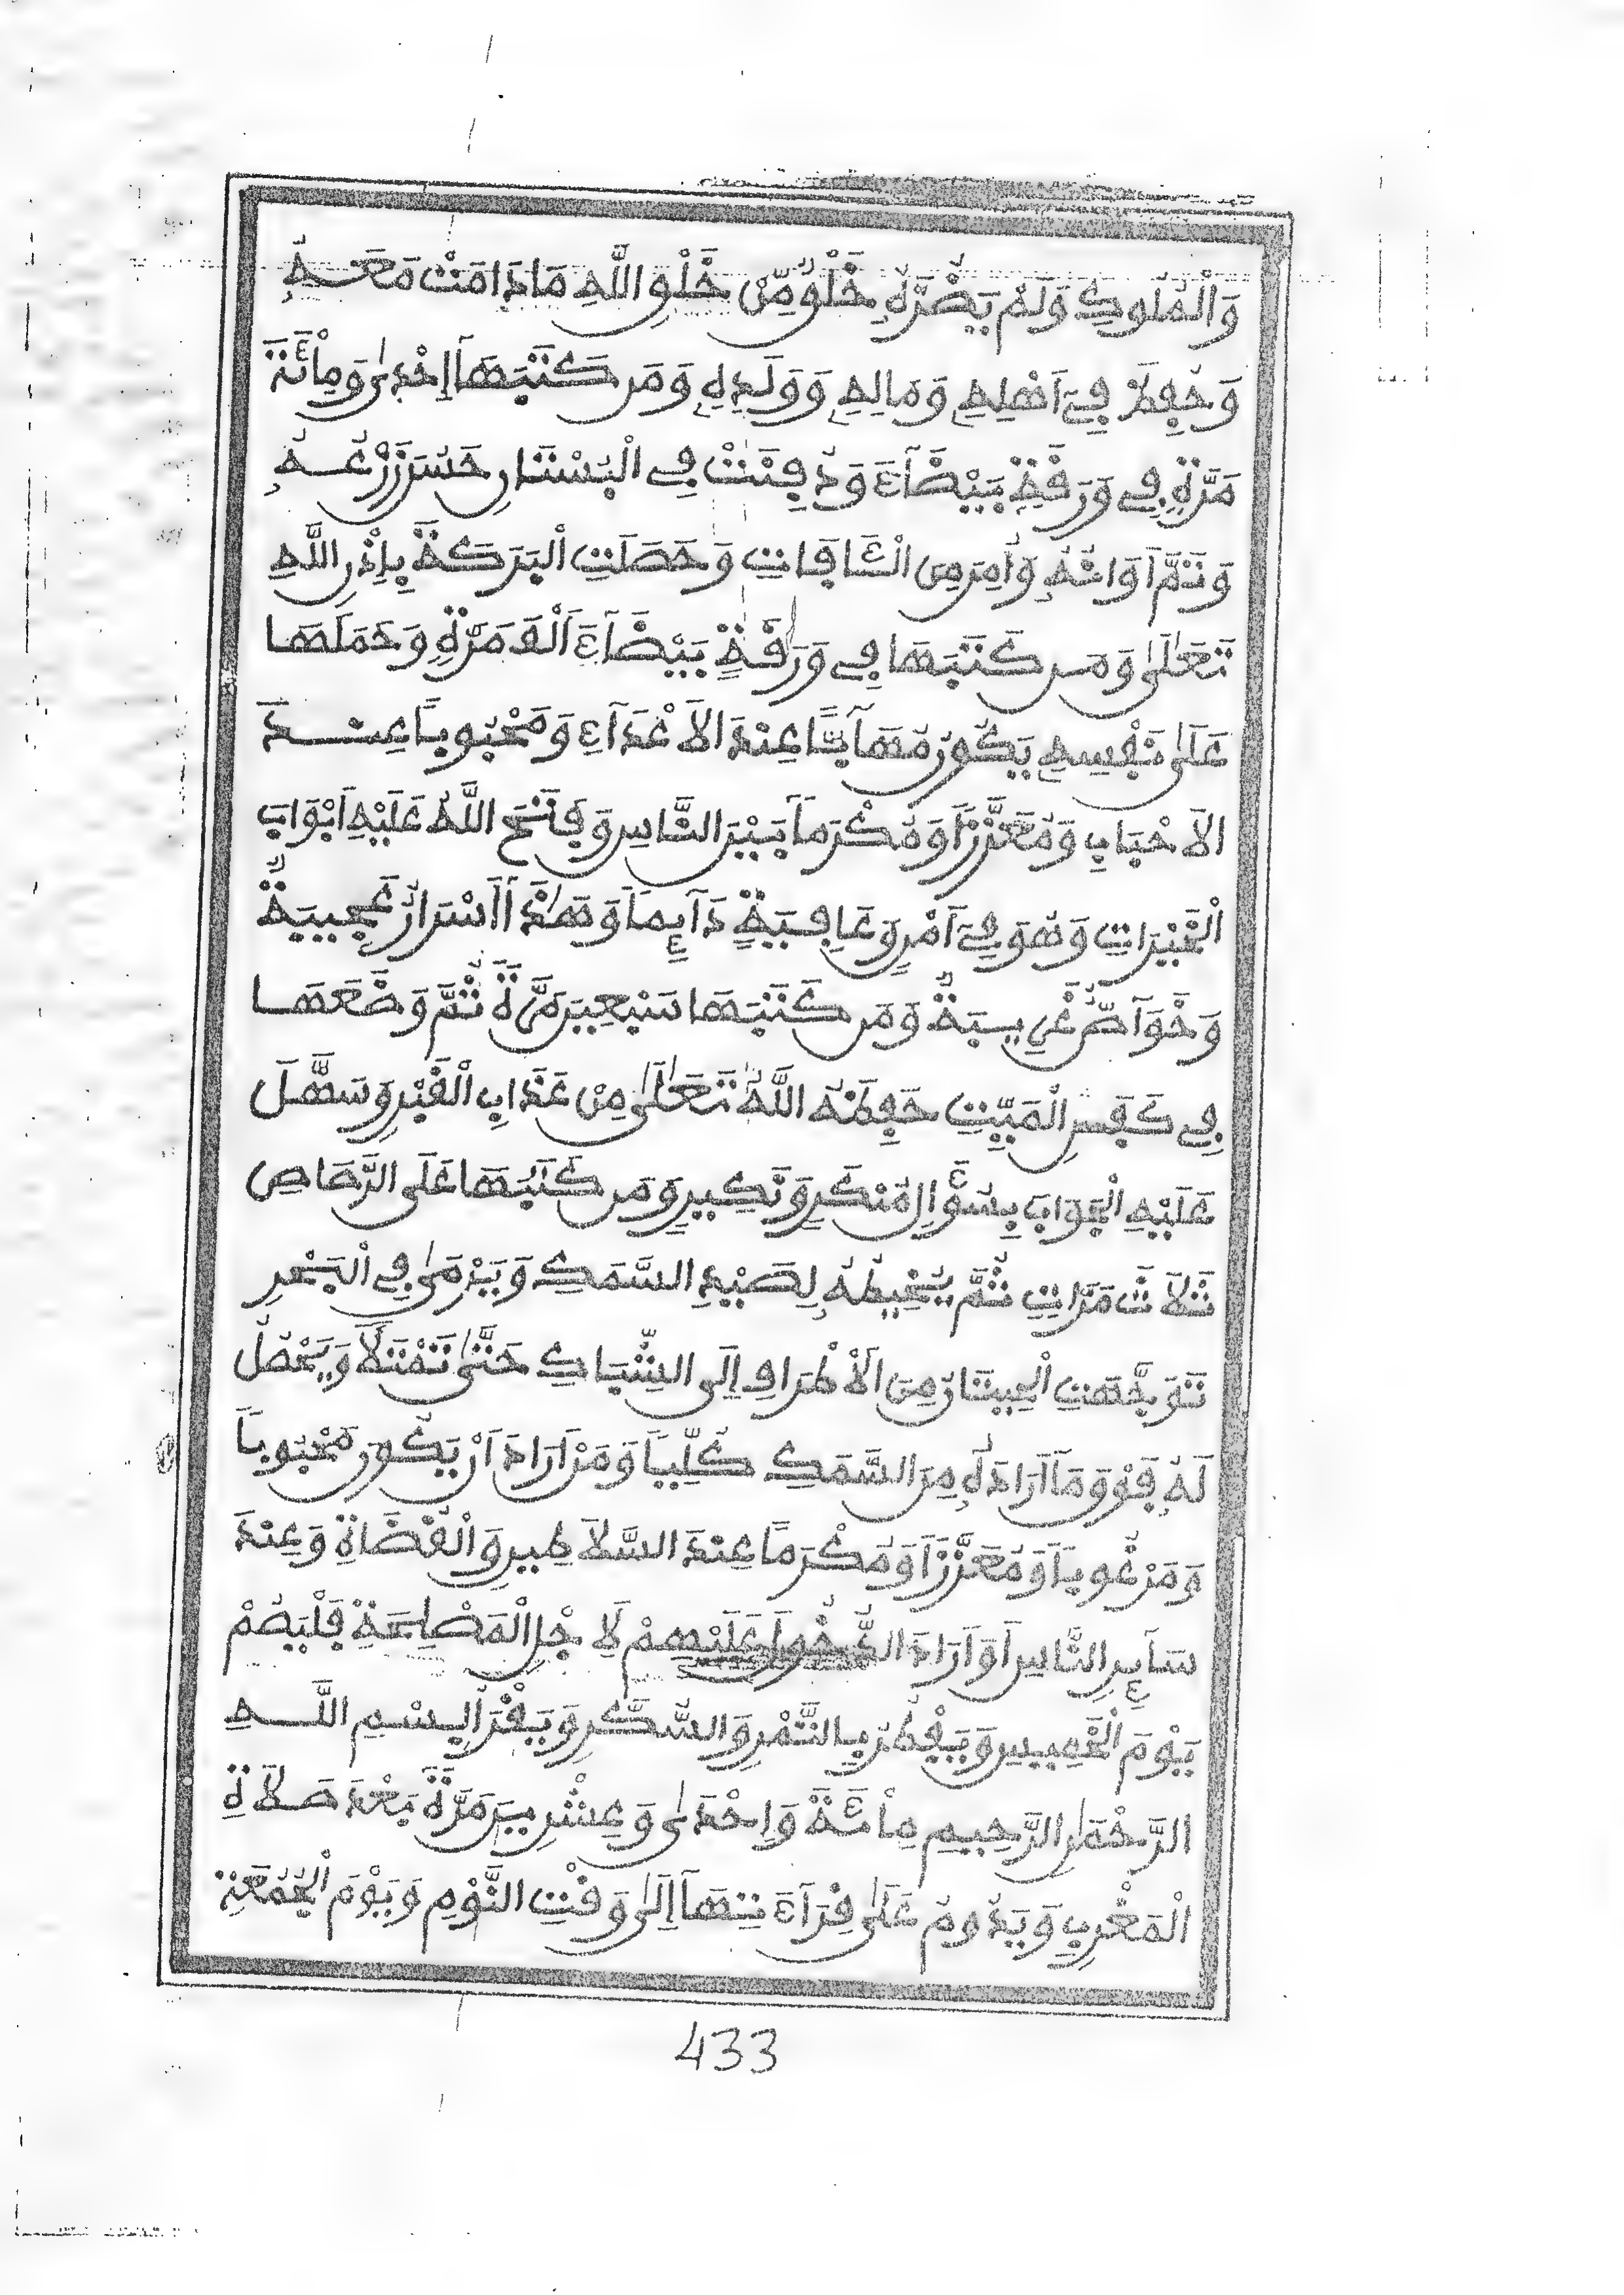 وَالْمُلُوكِ وَلَمْ يَضُرَّهُ خَلْقٌ مِّنْ خَلْقِ اللَّهِ مَا دَامَتْ مَعَهُ
وَحُفِظَ فِي أَهْلِهِ وَمَالِهِ وَوَلَدِهِ وَمَن كَتَبَهَا إِحْدَىٰ وَمِائَةَ
مَرَّةٍ فِي وَرَقَةٍ بَيْضَآءَ وَدُفِنَتْ فِي الْبُسْتَانِ حَسُنَ زَرْعُهُ
وَنَمَّا أَوَانُهُ وَأَمِنَ مِنَ الْئَافَاتِ وَحَصَلَتِ الْبَرَكَةُ بِإِذْنِ اللَّهِ
تَعَالَىٰ وَمَن كَتَبَهَا فِي وَرَقَةٍ بَيْضَآءَ أَلْفَ مَرَّةٍ وَحَمَلَهَا
عَلَىٰ نَفْسِهِ يَكُونُ مُهَآبًا عِنْدَ الْأَعْدَآءِ وَمَحْبُوبًا عِنْدَ
الْأَحْبَابِ وَمُعَزَّزًا وَمُكْرَمًا بَيْنَ النَّاسِ وَفَتَحَ اللَّهُ عَلَيْهِ أَبْوَابَ
الْخَيْرَاتِ وَهُوَ فِي أَمْنٍ وَعَافِيَةٍ دَآئِمًا وَهَٰذَا أَسْرَارٌ عَجِيبَةٌ
وَخَوَآصُّ غَرِيبَةٌ وَمَن كَتَبَهَا سَبْعِينَ مَرَّةً ثُمَّ وَضَعَهَا
فِي كَفَنِ الْمَيِّتِ حَفِظَهُ اللَّهُ تَعَالَىٰ مِنْ عَذَابِ الْقَبْرِ وَسَهَّلَ
عَلَيْهِ الْجَوَابَ بِسُؤَالِ مُنْكَرٍ وَنَكِيرٍ وَمَن كَتَبَهَا عَلَى الرَّصَاصِ
ثَلَاثَ مَرَّاتٍ ثُمَّ يُخِيطُهُ لِصَيْدِ السَّمَكِ وَيَرْمَىٰ فِي الْبَحْرِ
تَوَجَّهَتِ الْحِيتَانُ مِنَ الْأَطْرَافِ إِلَى الشِّبَاكِ حَتَّىٰ تَمْتَلَأَ وَيَحْصُلُ
لَهُ فَوْقَ مَا أَرَادَ لَهُ مِنَ السَّمَكِ كُلِّيًا وَمَنْ أَرَادَ أَنْ يَكُونَ مَحْبُوبًا
وَمَرْغُوبًا وَمُعَزَّزًا وَمُكْرَمًا عِنْدَ السَّلَاطِينِ وَالْقُضَاةِ وَعِنْدَ
سَآئِرِ النَّاسِ أَوْ أَرَادَ الدُّخُولَ عَلَيْهِمْ لِأَجْلِ الْمَصْلِحَةِ فَلْيَصُمْ
يَوْمَ الْخَمِيسِ وَيَفْطُرُ بِالتَّمْرِ وَالسُّكَّرِ وَيَقْرَأُ بِسْمِ اللَّهِ
الرَّحْمَٰنِ الرَّحِيمِ مِائَةً وَإِحْدَىٰ وَعِشْرِينَ مَرَّةً بَعْدَ صَلَاةِ
الْمَغْرِبِ وَيَدُومُ عَلَىٰ قِرَآءَتِهَا إِلَىٰ وَقْتِ النَّوْمِ وَيَوْمَ الْجُمُعَةِ
433